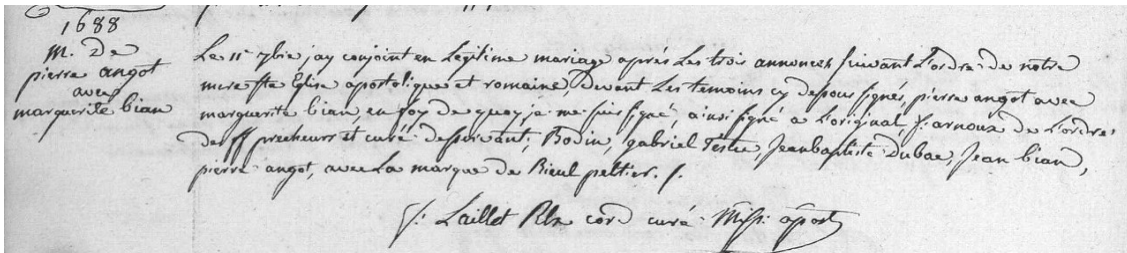 1688
m. de
pierre angot
avec
marguerite bian
Le 11e 7bre jay conjoint en Legitime mariage après Les trois annonces suivant L'ordre de notre
mere ste Eglise apostolique et romaine, devant Les temoins cy dessous signés, pierre angot avec
marguerite bian, en foy de quoy je me suis signé ainsi signé a L'original, f. arnoux de L'ordre
des ff precheurs et curé desservant, Bodin, gabriel Testu, Jean baptiste Dubac, Jean bian,
pierre angot, avec La marque de Rieul peltier. /.
f. Laillet Rlx cord curé Miss. apost